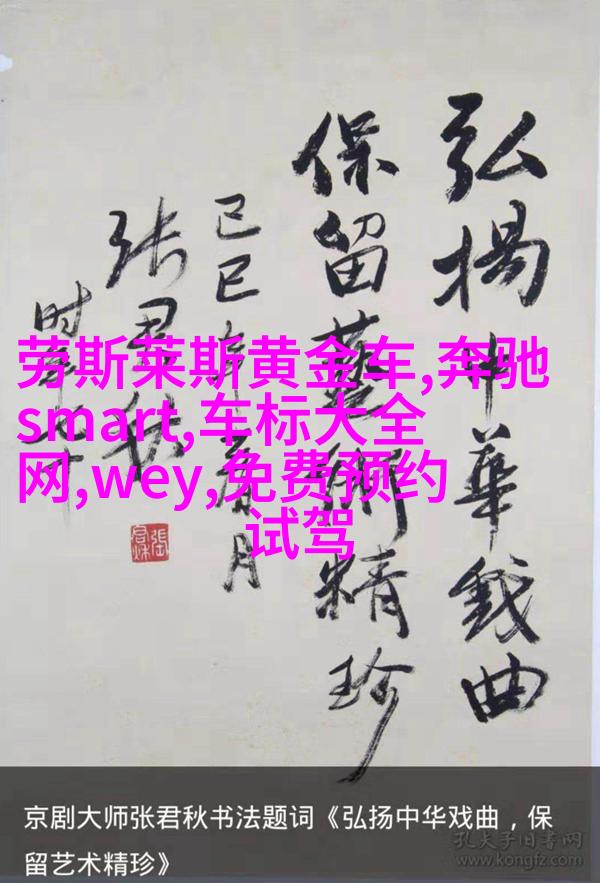 弘揚中華戲曲
保留藝術精珍
己巳年春月
张君秋
时年
劳斯莱斯黄金车,奔驰
smart,车标大全
网,wey,免费预约
试驾
京剧大师张君秋书法题词《弘扬中华戏曲，保
留艺术精珍》
孔夫子旧书网
www.kongfz.com